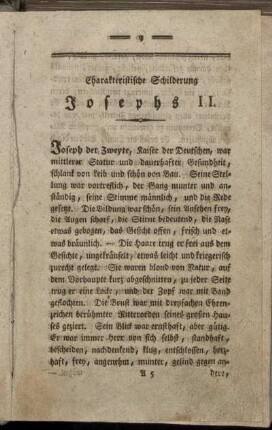 9
Charakteristische Schilderung
Josephs II.
Joseph der Zweyte, Kaiser der Deutschen, war
mittlerer Statur und dauerhafter Gesundheit,
schlank von Leib und schön von Bau. Seine Stel-
lung war vortreflich, der Gang munter und an-
ständig, seine Stimme männlich, und die Rede
gesetzt. Die Bildung war schön, sein Aussehen frey
die Augen scharf, die Stirne bedeutend, die Nase
etwas gebogen, das Gesicht offen, frisch und et-
was bräunlich. — Die Haare trug er frei aus dem
Gesichte, ungekräuselt, etwas leicht und kriegerisch
zurecht gelegt. Sie waren blond von Natur, auf
dem Vorhaupte kurz abgeschnitten, zu jeder Seite
trug er eine Locke, und der Zopf war mit Band
geflochten. Die Brust war mit dreyfachen Ehren-
zeichen berühmter Ritterorden seines großen Hau-
ses geziert. Sein Blick war ernsthaft, aber gütig.
Er war immer Herr von sich selbst, standhaft,
bescheiden, nachdenkend, klug, entschlossen, herz-
haft, frey, angenehm, munter, gelind gegen an-
A 5 dere,